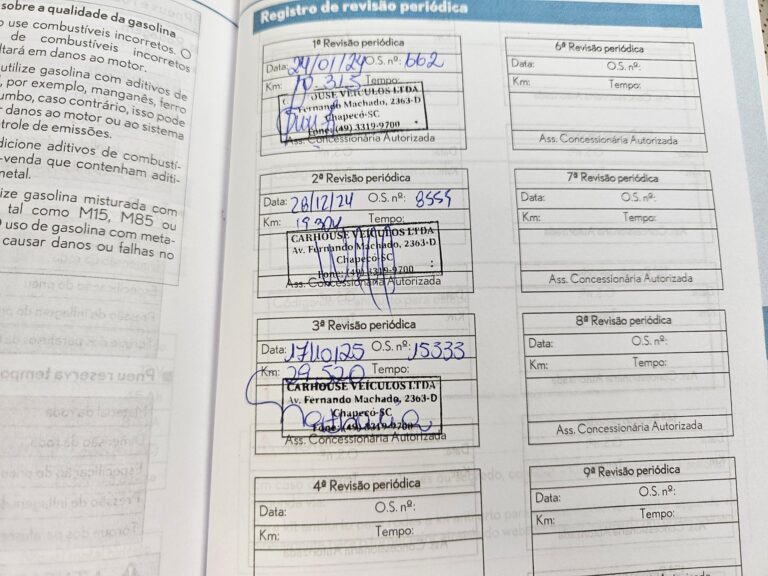 sobre a qualidade da gasolina
use combustíveis incorretos. O
de combustíveis incorretos
ltará em danos ao motor.
utilize gasolina com aditivos de
por exemplo, manganês, ferro
umbo, caso contrário, isso pode
danos ao motor ou ao sistema
trole de emissões.
dicione aditivos de combustí-
-venda que contenham aditi-
metal.
ize gasolina misturada com
tal como M15, M85 ou
uso de gasolina com meta-
causar danos ou falhas no
Pneu reserva tempo
Registro de revisão periódica
1ª Revisão periódica
Data: 24/01/24 O.S. nº: 662
Km: 10.315 Tempo:
OUSE VEÍCULOS LTDA
Fernando Machado, 2363-D
Chapecó-SC
Fone: (49) 3319-9700
Ass. Concessionária Autorizada
2ª Revisão periódica
Data: 28/12/24 O.S. nº: 8559
Km: 19304 Tempo:
CARHOUSE VEÍCULOS LTDA
Av. Fernando Machado, 2363-D
Chapecó-SC
Fone: (49) 3319-9700
Ass. Concessionária Autorizada
3ª Revisão periódica
Data: 17/10/25 O.S. nº: 15333
Km: 29.520
CARHOUSE VEÍCULOS LTDA
Av. Fernando Machado, 2363-D
Chapecó-SC
Fone: (49) 3319-9700
Ass. Concessionária Autorizada
4ª Revisão periódica
Data: O.S. nº:
Km: Tempo:
6ª Revisão periódica
Data: O.S. nº:
Km: Tempo:
Ass. Concessionária Autorizada
7ª Revisão periódica
Data: O.S. nº:
Km: Tempo:
Ass. Concessionária Autorizada
8ª Revisão periódica
Data: O.S. nº:
Km: Tempo:
Ass. Concessionária Autorizada
9ª Revisão periódica
Data: O.S. nº:
Km: Tempo: